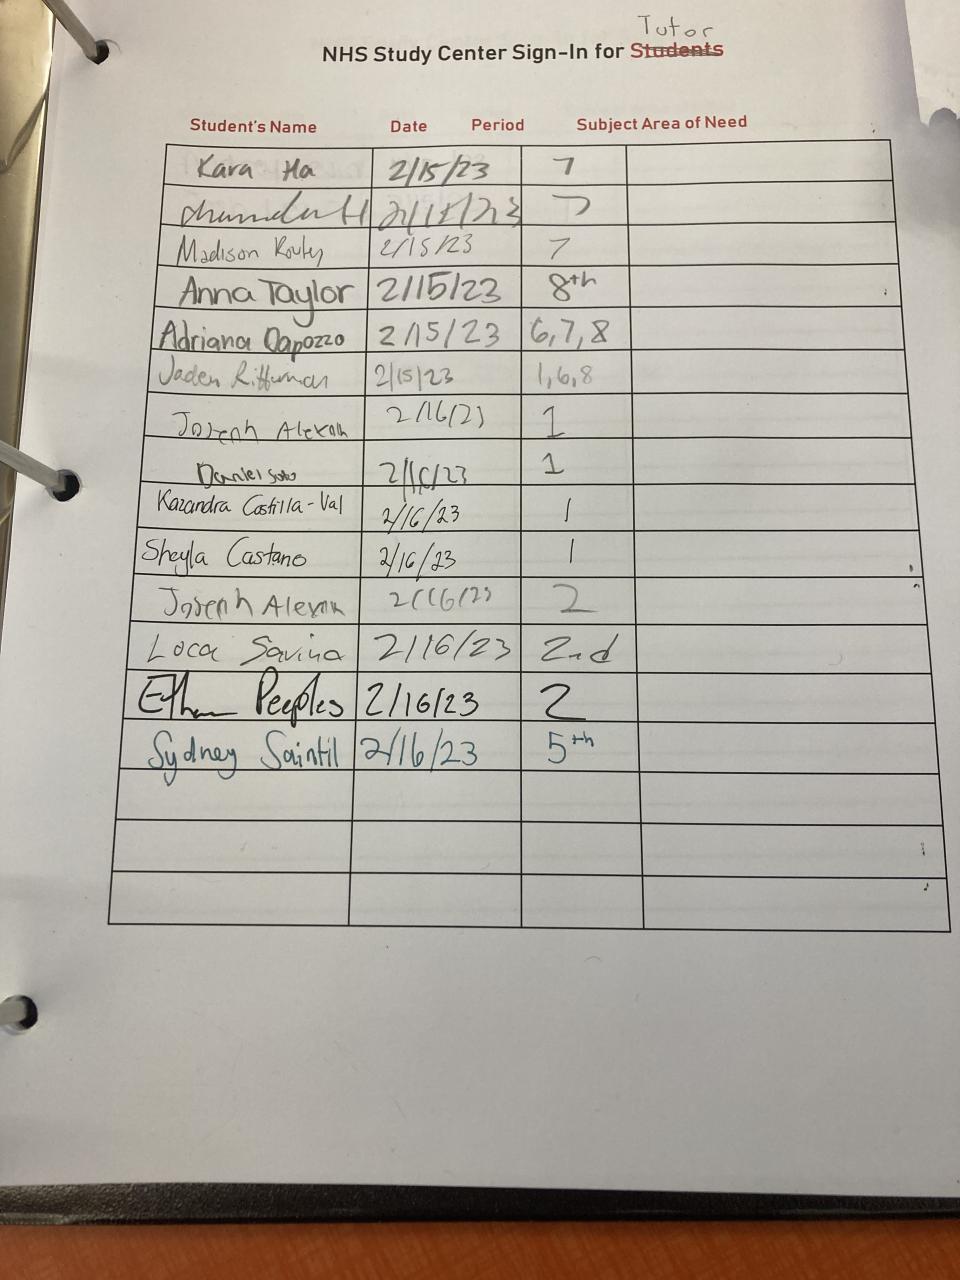 Tutor
NHS Study Center Sign-In for Students
Student's Name Date Period Subject Area of Need
Kara Ha 2/15/23 7
7
Madison 2/15/23 7
Anna Taylor 2/15/23 8th
Adriana Dapozzo 2/15/23 6,7,8
Jaden 2/15/23 1,6,8
Joseph 2/16/23 1
Daniel Soto 2/16/23 1
Kazandra Castilla-Val 2/16/23 1
Sheyla Castano 2/16/23 1
Joseph 2/16/23 2
Luca Savina 2/16/23 2nd
Ethan Peeples 2/16/23 2
Sydney Saintil 2/16/23 5th